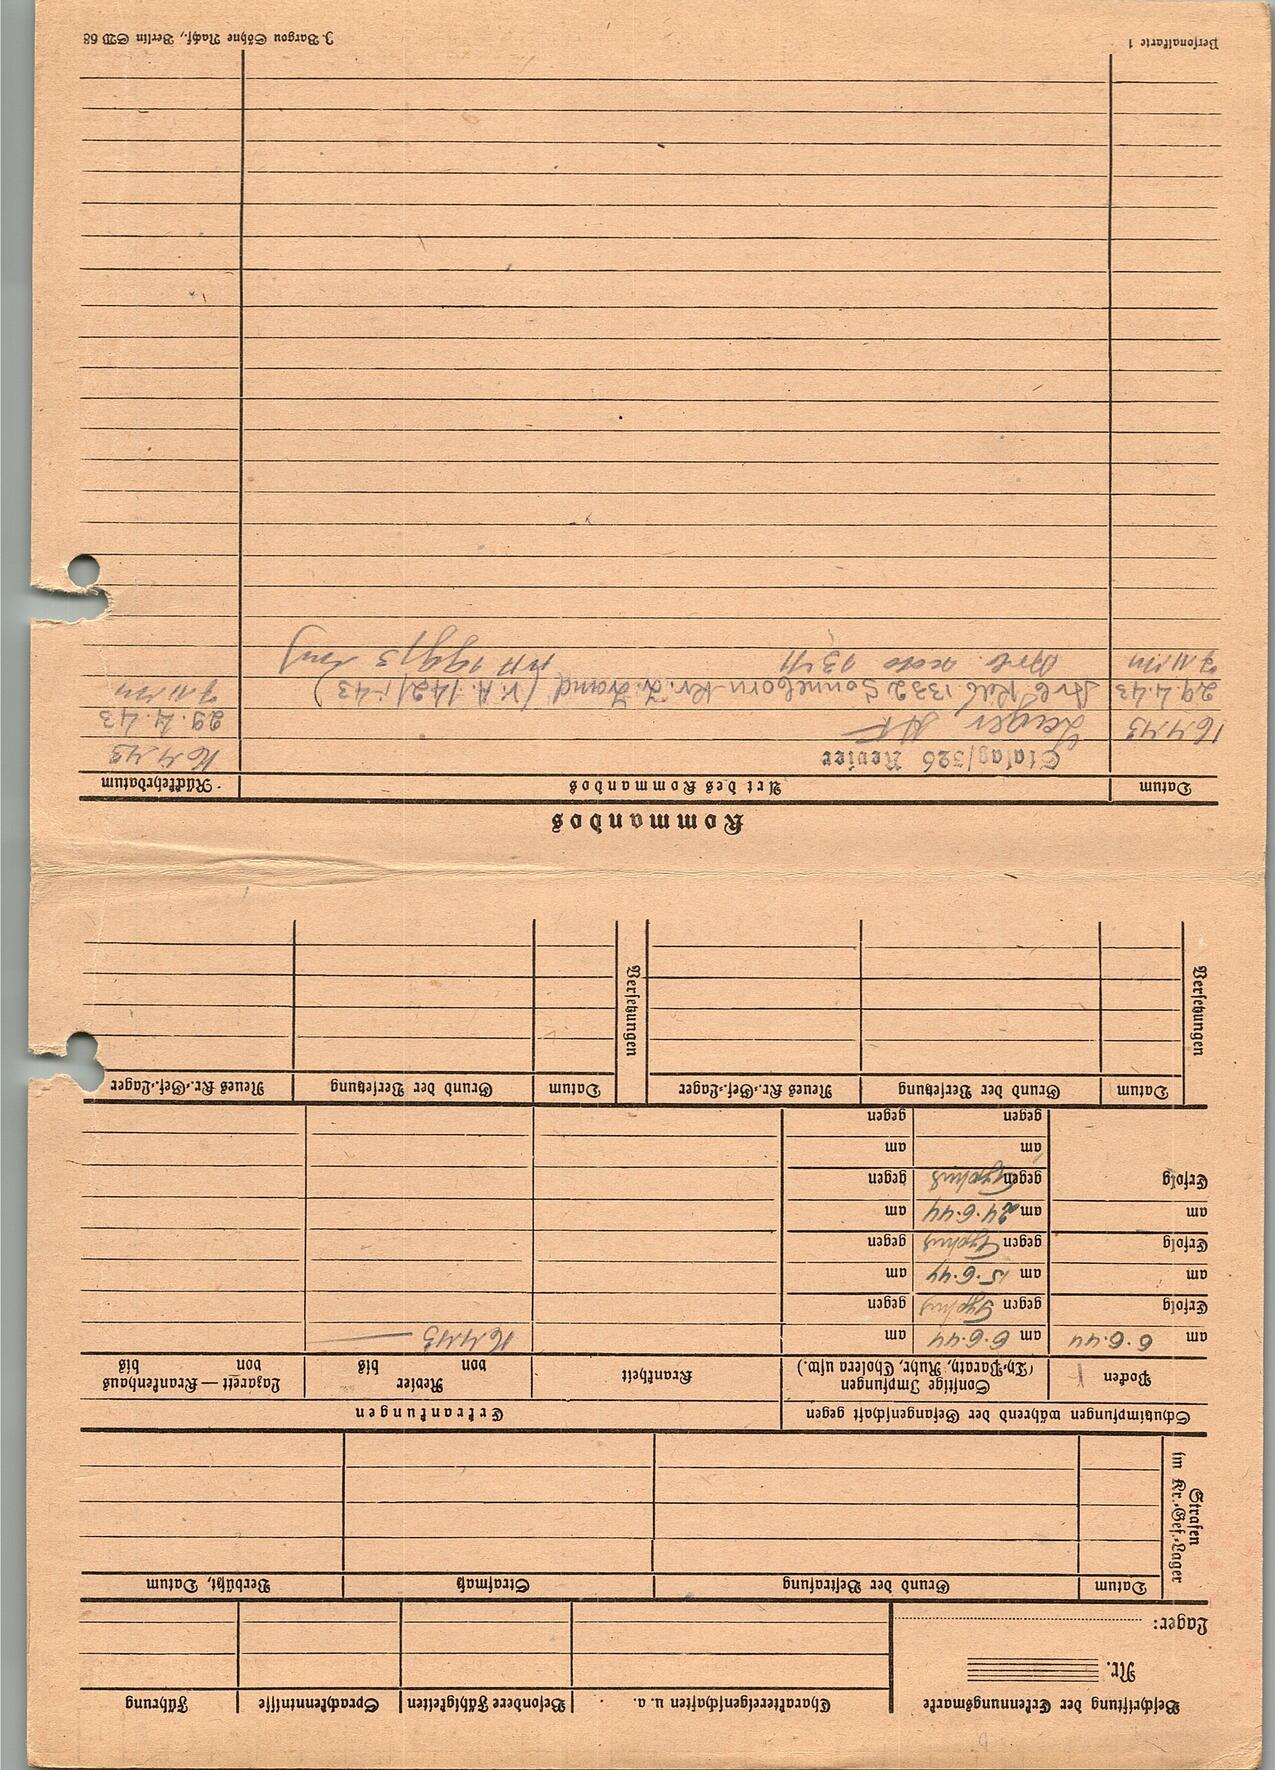 Beschriftung der Erkennungsmarke
Nr.
Lager:
Charaktereigenschaften u. a.
Besondere Fähigkeiten
Sprachkenntnisse
Führung
Strafen
im Kr.-Gef.-Lager
Datum
Grund der Bestrafung
Strafmaß
Verbüßt, Datum
Schutzimpfungen während der Gefangenschaft gegen
Erkrankungen
Pocken
Sonstige Impfungen
(Ty.-Paraty., Ruhr, Cholera usw.)
Krankheit
Revier
von bis
Lazarett — Krankenhaus
von bis
am 6.6.44
am 6.6.44
am
16.4.43
Erfolg
gegen Typhus
gegen
am
am 15.6.44
am
Erfolg
gegen Typhus
gegen
am
am 24.6.44
am
Erfolg
gegen Typhus
gegen
am
am
gegen
gegen
Versetzungen
Datum
Grund der Versetzung
Neues Kr.-Gef.-Lager
Versetzungen
Datum
Grund der Versetzung
Neues Kr.-Gef.-Lager
Kommandos
Datum
Art des Kommandos
Rückkehrdatum
Stalag/326 Revier
16.4.43
16.4.43
Lager
29.4.43
29.4.43
Arb Kdo. 1332 Sonneborn Kr. (V.A. 142/1-43)
Personalkarte 1
J. Bargou Söhne Nachf., Berlin SW 68